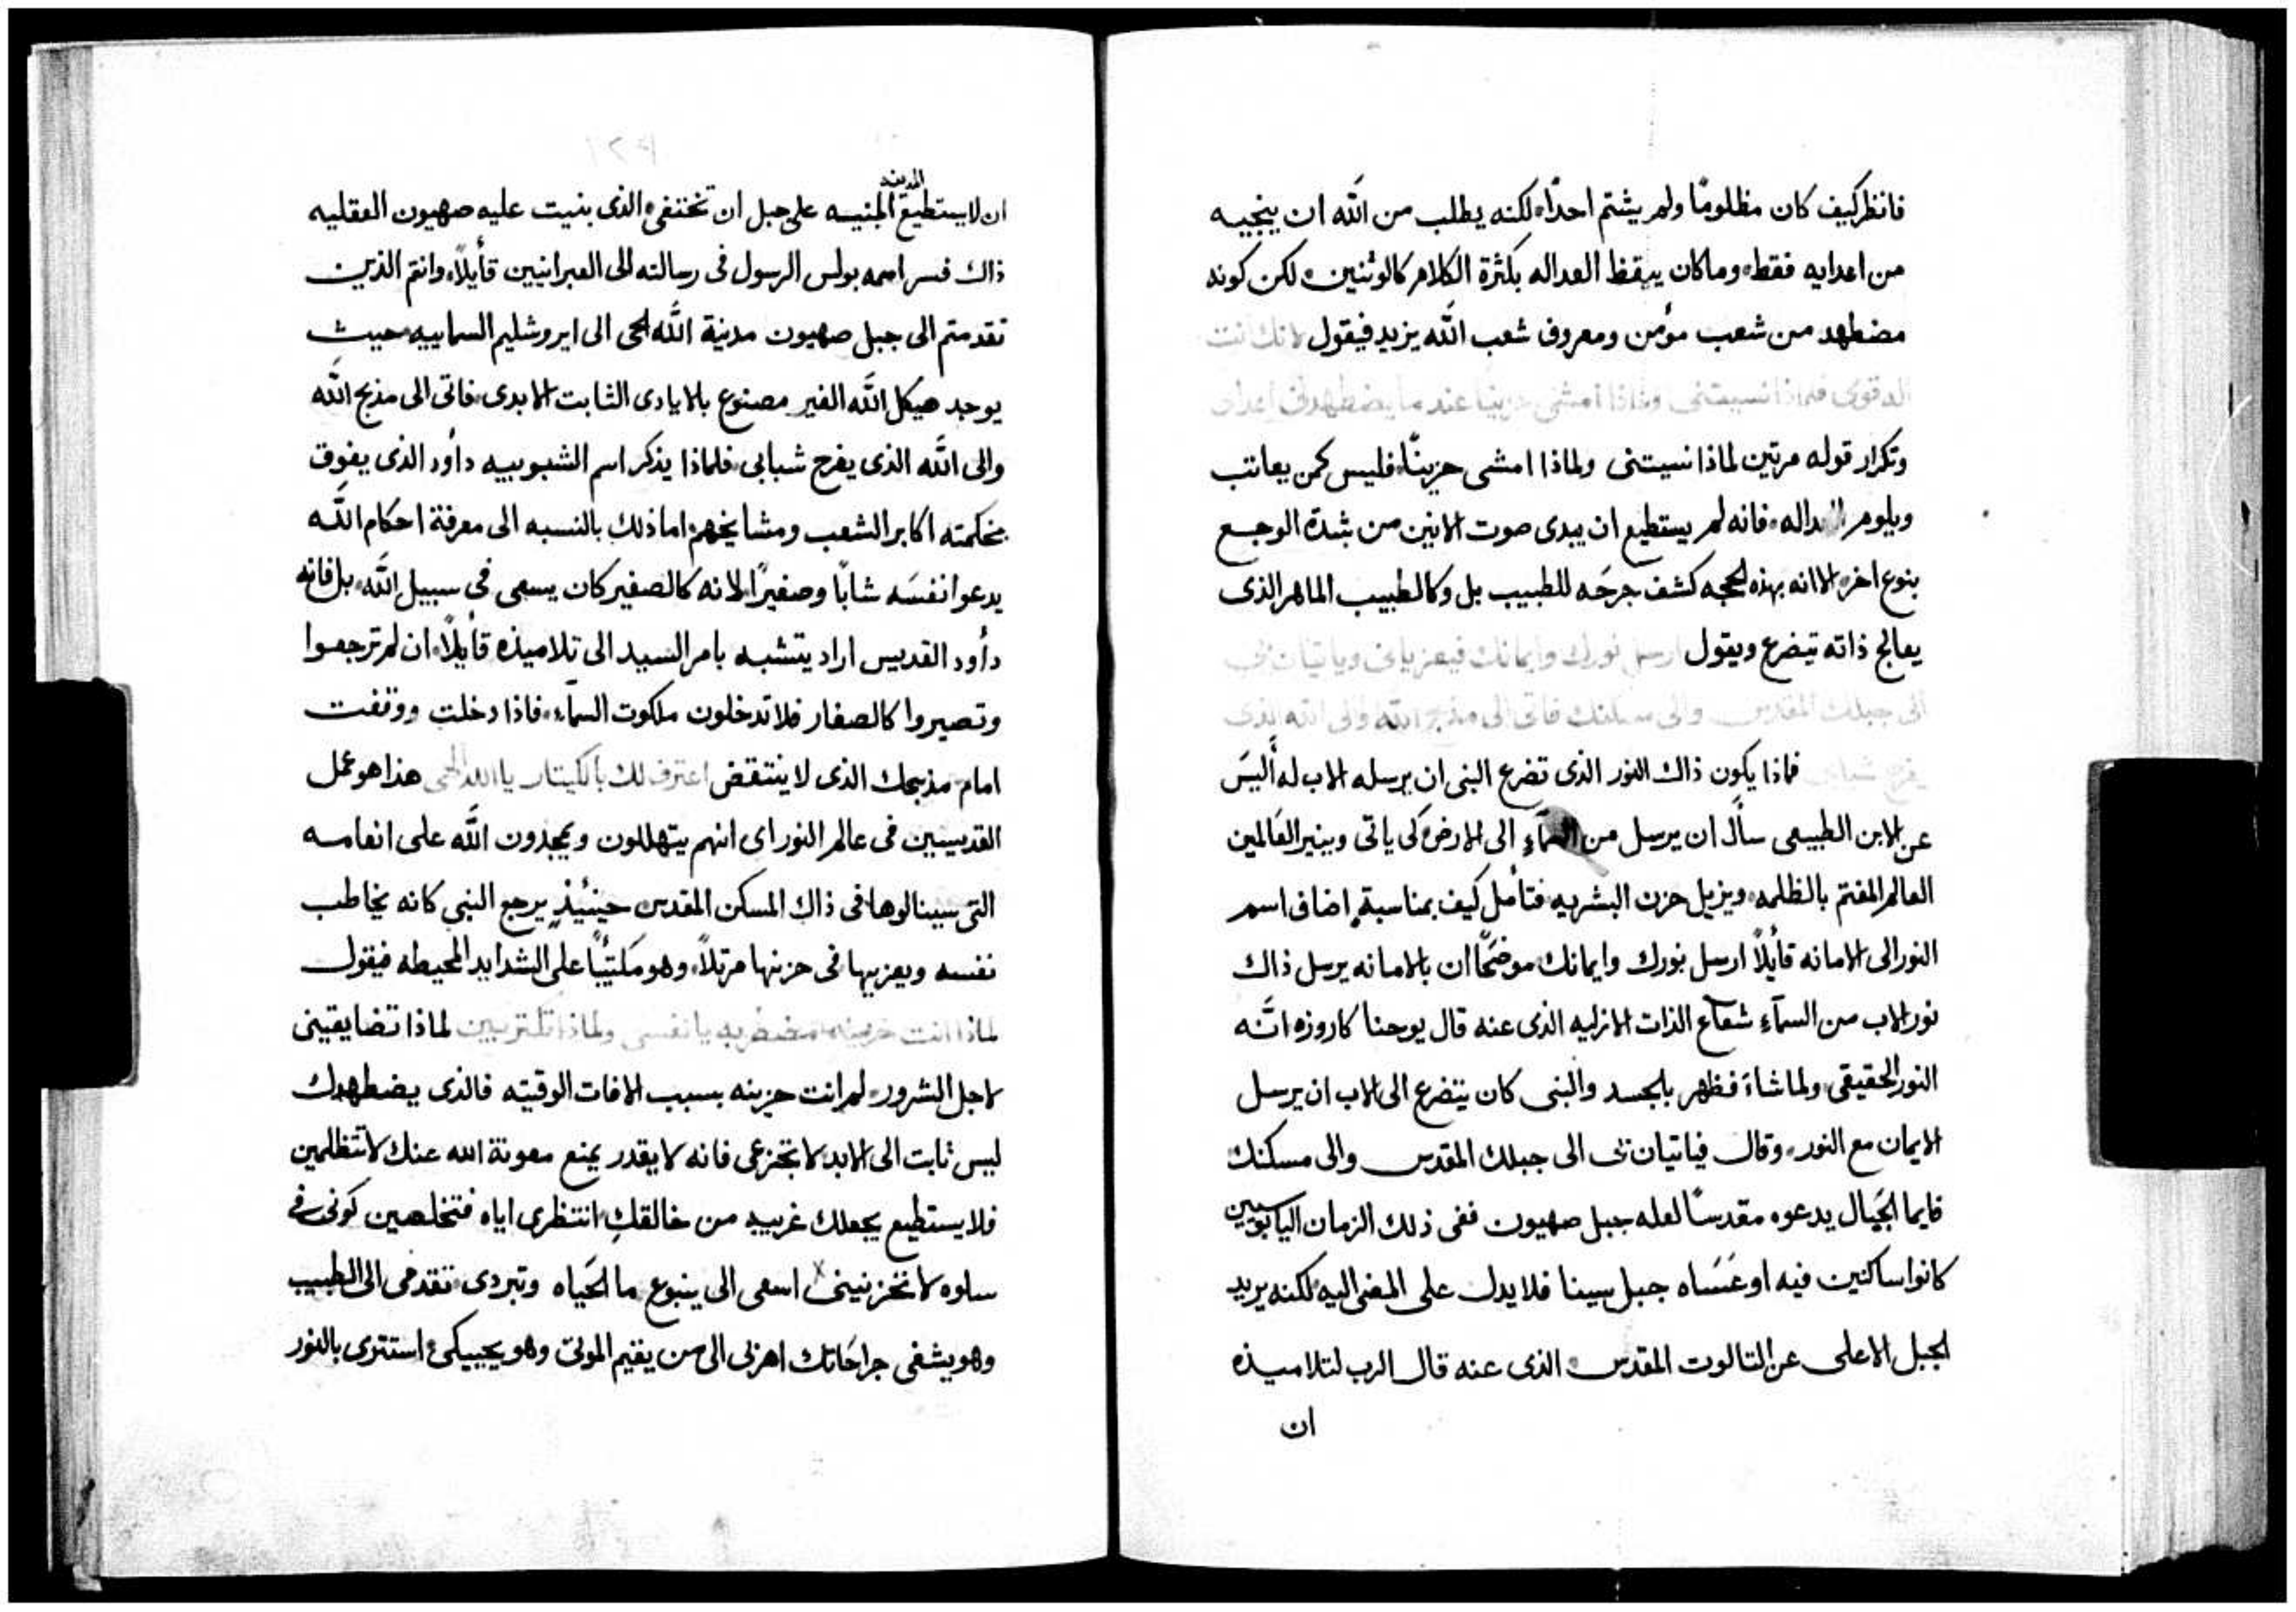 فانظر كيف كان مظلومًا ولم يشتم احدًا، لكنه يطلب من الله ان ينجيه
من اعدايه فقط، وما كان ييقظ العداله بكثرة الكلام كالوثنين، لكن كونه
مضطهد من شعب مؤمن ومعروف شعب الله يزيد فيقول لانك انت
الله قوتى فلماذا نسيتنى ولماذا امشى حزينا عند ما يضطهدنى اعداى
وتكرار قوله مرتين لماذا نسيتنى ولماذا امشى حزينًا، فليس كمن يعاتب
ويلوم العداله، فانه لم يستطيع ان يبدى صوت الانين من شدة الوجع
بنوع اخر، الا انه بهذه الحجه كشف جرحَه للطبيب بل وكالطبيب الماهر الذى
يعالج ذاته تيضرع ويقول ارسل نورك وايمانك فيعزيانى وياتيان بى
الى جبلك المقدس والى مسكنك فاتى الى مذبح الله والى الله الذى
يفرح شبابى فماذا يكون ذاك النور الذى تضرع النبى ان يرسله الاب له أليسَ
عن الابن الطبيعى سأل ان يرسل من السمآء الى الارض كى ياتى وينير العَالمين
العالم المغتم بالظلمه، ويزيل حزن البشريه، فتأمل كيف بمناسبةٍ اضاف اسم
النور الى الامانه قايلاً ارسل نورك وايمانك، موضحًا ان بالامانه يرسل ذاك
نور الاب من السمآء شعاع الذات الازليه الذى عنه قال يوحنا كاروزه انَّه
النور الحقيقى، ولما شاءَ فظهر بالجسد والنبى كان يتضرع الى الاب ان يرسل
الايمان مع النور، وقال فياتيان بى الى جبلك المقدس والى مسكنك
فايما الجَبال يدعوه مقدسًا لعله جبل صهيون ففى ذلك الزمان اليابوسيين
كانوا ساكنين فيه او عَسَاه جبل سينا فلا يدل على المضى اليه، لكنه يريد
الجبل الاعلى عن التالوت المقدس، الذى عنه قال الرب لتلاميذه
ان
ان لا يستطيع المدينه المبنيه على جبل ان تختفى، الذى بنيت عليه صهيون العقليه
ذاك فسر اسمه بولس الرسول فى رسالته الى العبرانيين قأيلاً، وانتم الذين
تقدمتم الى جبل صهيون مدنية الله الحى الى ايروشليم السماييه، حيث
يوجد هيكل الله الغير مصنوع بالايادى الثابت الابدى، فاتى الى مذبح الله
والى الله الذى يفرح شبابى، فلماذا يذكر اسم الشبوبييه دأود الذى يفوق
بحكمته اكابر الشعب ومشايخهم، اما ذلك بالنسبه الى معرفة احكام الله
يدعوا نفسَه شابًا وصغيرًا، لانه كالصغير كان يسعى فى سبيل الله، بل فانه
دأود القديس اراد يتشبه بامر السيد الى تلاميذه قأيلاً، ان لم ترجعوا
وتصيروا كالصغار فلا تدخلون ملكوت السمآء، فاذا دخلت ووقفت
امام مذبحك الذى لا ينتقض اعترف لك بالكيتار يا الله الهى هذا هو عمل
القديسين فى عالم النور اى انهم يتهللون ويمجدون الله على انعامه
التى سينالوها فى ذاك المسكن المقدس حينئيذٍ يرجع النبى كانه يخاطب
نفسه ويعزيها فى حزنها مرتلاً، وهو مكتئبًا على الشدايد المحيطه فيقول
لماذا انت حزينه مضطربه يا نفسى ولماذا تكتربين لماذا تضايقينى
لاجل الشرور، لم انت حزينه بسبب الافات الوقتيه فالذى يضطهدك
ليس ثابت الى الابد لا تجزعى فانه لا يقدر يمنع معونة الله عنك لا تتظلمين
فلا يستطيع يجعلك غريبه من خالقكِ، انتظرى اياه فتخلصين كونى فى
سلوه لا تحزنينى اسعى الى ينبوع ما الحَياه وتبردى، تقدمى الى الطبيب
وهو يشفى جراحَاتك اهربى الى من يقيم الموتى وهو يحييكى، استترى بالنور